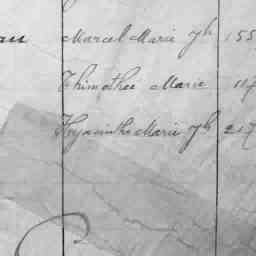 au Marcel Marie Jh 155
Thimothée Marie 117
Hyacinthe Marie Jh 217